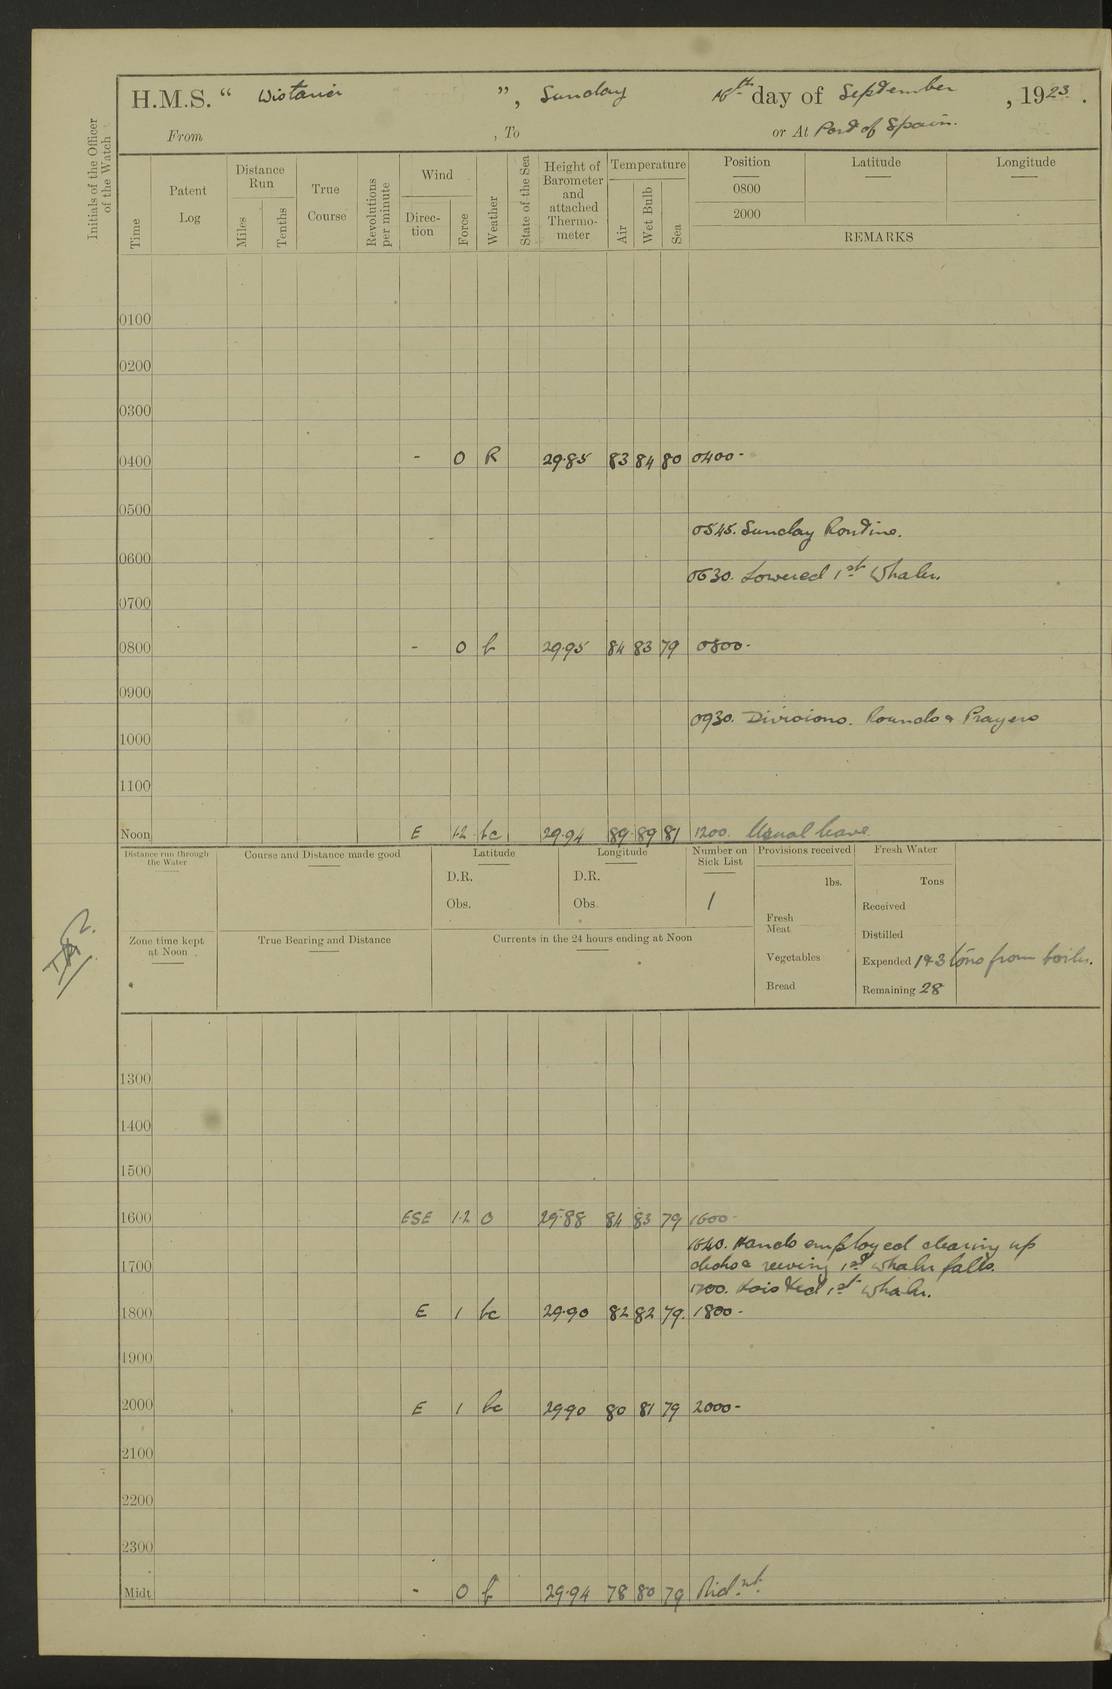 H.M.S. “ Wistaria ”, Sunday 16th day of September, 1923.
From , To or At Port of Spain.
Initials of the Officer of the Watch
Time
Patent Log
Distance Run
Miles
Tenths
True Course
Revolutions per minute
Wind
Direc-tion
Force
Weather
State of the Sea
Height of Barometer and attached Thermo-meter
Temperature
Air
Wet Bulb
Sea
Position Latitude Longitude
0800
2000
REMARKS
0100
0200
0300
0400 - 0 R 29.85 83 84 80 0400-
0500
0545. Sunday Routine.
0600
0630. Lowered 1st Whaler.
0700
0800 - 0 b 29.95 84 83 79 0800-
0900
0930. Divisions. Rounds & Prayers
1000
1100
Noon E 1.2 bc 29.94 89 89 81 1200. Usual leave.
Distance run through the Water
Course and Distance made good
Latitude
D.R.
Obs.
Longitude
D.R.
Obs.
Number on Sick List
1
Provisions received
lbs.
Fresh Meat
Vegetables
Bread
Fresh Water
Tons
Received
Distilled
Expended 1 & 3 tons from boiler.
Remaining 28
Zone time kept at Noon
True Bearing and Distance
Currents in the 24 hours ending at Noon
1300
1400
1500
1600 ESE 1.2 O 29.88 84 83 79 1600-
1640. Hands employed clearing up
decks & reeving 1st whaler falls.
1700
1700. Hoisted 1st whaler.
1800 E 1 bc 29.90 82 82 79. 1800-
1900
2000 E 1 bc 29.90 80 81 79 2000-
2100
2200
2300
Midt - 0 b 29.94 78 80 79 Mid.nt.